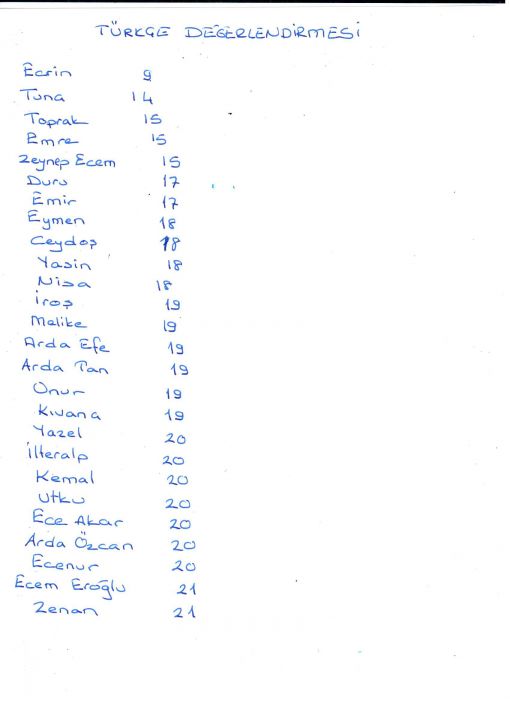 TÜRKGE DEĞERLENDİRMESİ
Ecrin 9
Tuna 14
Toprak 15
Emre 15
Zeynep Ecem 15
Duru 17
Emir 17
Eymen 18
Ceydoş 18
Yasin 18
Nisa 18
İroş 19
Melike 19
Arda Efe 19
Arda Tan 19
Onur 19
Kıvana 19
Yazel 20
İlteralp 20
Kemal 20
Utku 20
Ece Akar 20
Arda Özcan 20
Ecenur 20
Ecem Eroğlu 21
Zenan 21